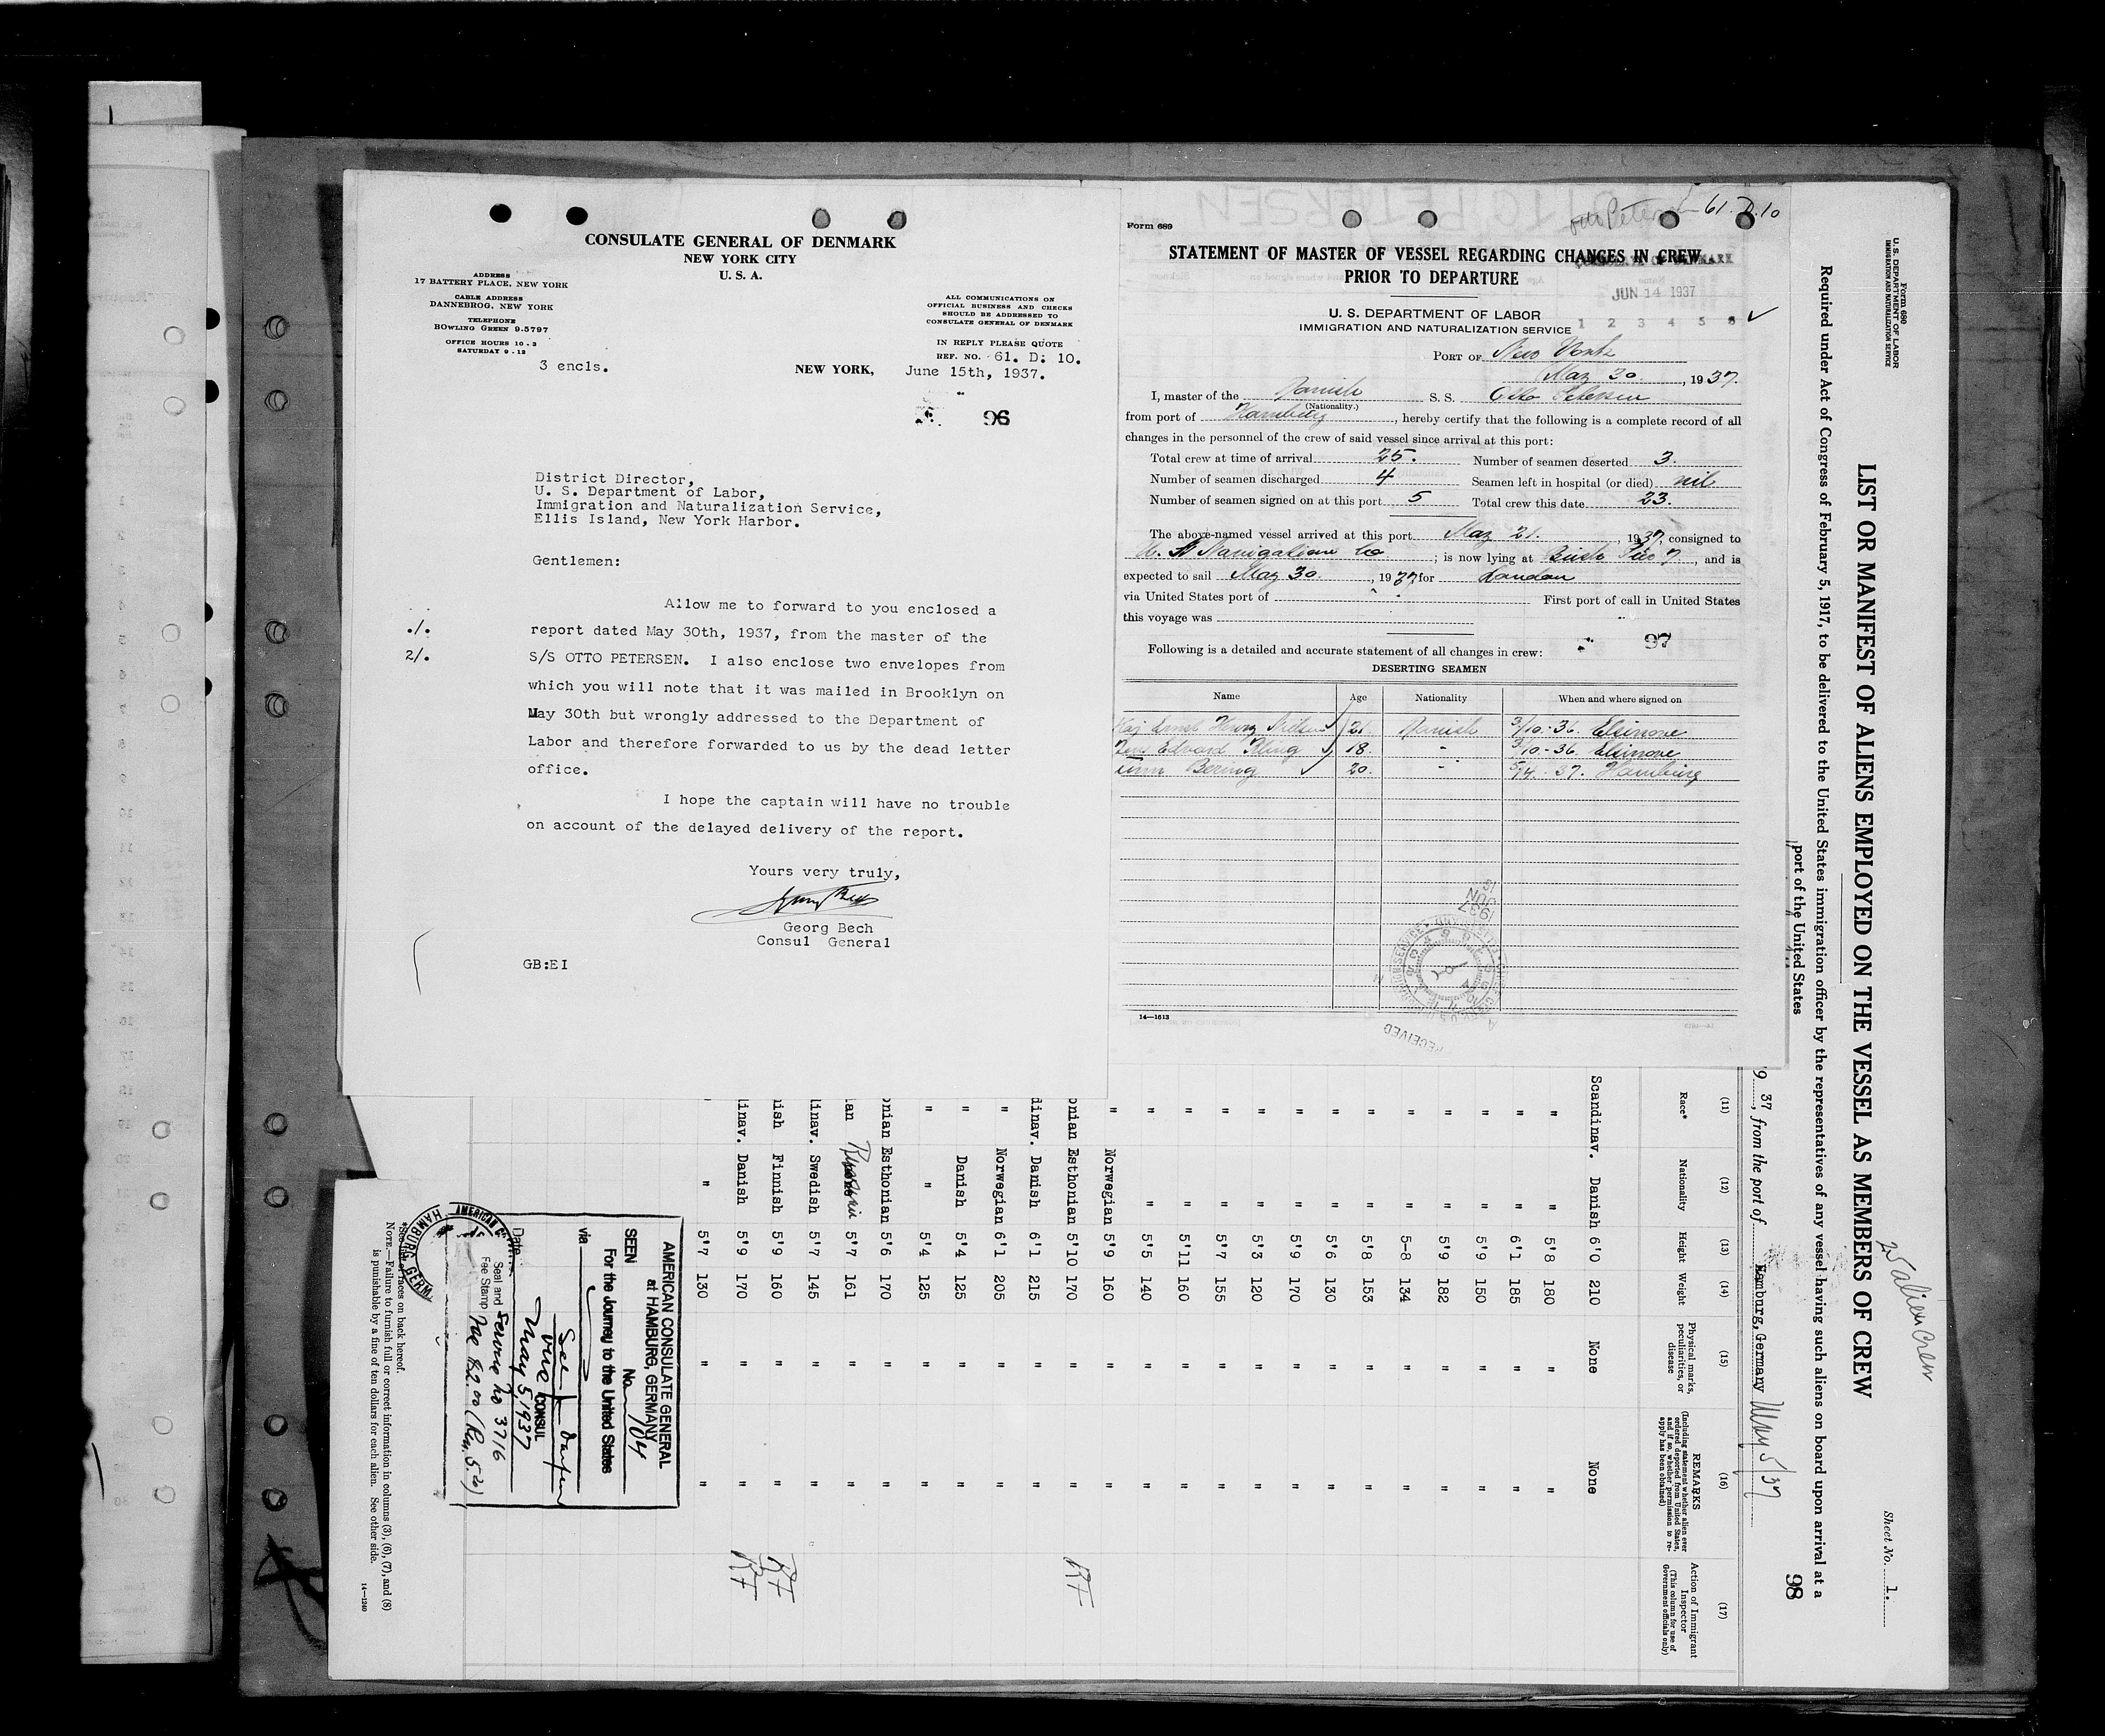 CONSULATE GENERAL OF DENMARK
NEW YORK CITY
U. S. A.
ADDRESS
17 BATTERY PLACE, NEW YORK
CABLE ADDRESS
DANNEBROG, NEW YORK
TELEPHONE
BOWLING GREEN 9-5797
OFFICE HOURS 10 - 3
SATURDAY 9 - 12
3 encls.
ALL COMMUNICATIONS ON
OFFICIAL BUSINESS AND CHECKS
SHOULD BE ADDRESSED TO
CONSULATE GENERAL OF DENMARK
IN REPLY PLEASE QUOTE
REF. NO. 61. D: 10.
NEW YORK, June 15th, 1937.
96
District Director,
U. S. Department of Labor,
Immigration and Naturalization Service,
Ellis Island, New York Harbor.
Gentlemen:
Allow me to forward to you enclosed a
./. report dated May 30th, 1937, from the master of the
2/. S/S OTTO PETERSEN. I also enclose two envelopes from
which you will note that it was mailed in Brooklyn on
May 30th but wrongly addressed to the Department of
Labor and therefore forwarded to us by the dead letter
office.
I hope the captain will have no trouble
on account of the delayed delivery of the report.
Yours very truly,
Georg Bech
Consul General
GB:EI
61.D.10
Form 689
STATEMENT OF MASTER OF VESSEL REGARDING CHANGES IN CREW
PRIOR TO DEPARTURE
JUN 14 1937
U. S. DEPARTMENT OF LABOR
IMMIGRATION AND NATURALIZATION SERVICE
1 2 3 4 5 6
PORT OF New York
May 30. , 1937.
I, master of the Danish S. S. Otto Petersen
(Nationality.)
from port of Hamburg, hereby certify that the following is a complete record of all
changes in the personnel of the crew of said vessel since arrival at this port:
Total crew at time of arrival 25. Number of seamen deserted 3.
Number of seamen discharged 4 Seamen left in hospital (or died) nil
Number of seamen signed on at this port 5 Total crew this date 23.
The above-named vessel arrived at this port May 21. , 1937, consigned to
Navigation Co ; is now lying at Bush Pier 7, and is
expected to sail May 30. , 1937 for London
via United States port of First port of call in United States
this voyage was
97
Following is a detailed and accurate statement of all changes in crew:
DESERTING SEAMEN
Name Age Nationality When and where signed on
Kaj Ernst 21. Danish 3/10-36. Elsinore
Edvard Kling 18. - 3/10-36. Elsinore
Bering 20. - 5/4-37. Hamburg
RECEIVED
1937 JUN
14—1613
Form 680
U. S. DEPARTMENT OF LABOR
IMMIGRATION AND NATURALIZATION SERVICE
25 alien Crew
Sheet No. 1.
LIST OR MANIFEST OF ALIENS EMPLOYED ON THE VESSEL AS MEMBERS OF CREW
Required under Act of Congress of February 5, 1917, to be delivered to the United States immigration officer by the representatives of any vessel having such aliens on board upon arrival at a
port of the United States
98
37, from the port of Hamburg, Germany May 5/37
(11) (12) (13) (14) (15) (16) (17)
Race* Nationality Height Weight Physical marks, peculiarities, or disease REMARKS (Including statement whether alien ever ordered deported from United States, and if so, whether permission to reapply has been obtained) Action of Immigrant Inspector (This column for use of Government officials only)
Scandinav. Danish 6'0 210 None None
" " 5'8 180 " "
" " 6'1 185 " "
" " 5'9 150 " "
" " 5'9 182 " "
" " 5-8 134 " "
" " 5'8 153 " "
" " 5'6 130 " "
" " 5'9 170 " "
" " 5'3 120 " "
" " 5'7 155 " "
" " 5'11 160 " "
" " 5'5 140 " "
" Norwegian 5'9 160 " "
onian Esthonian 5'10 170 " " RF
dinav. Danish 6'1 215 " "
" Norwegian 6'1 205 " "
" Danish 5'4 125 " "
" " 5'4 125 " "
onian Esthonian 5'6 170 " "
an 5'7 161 " "
inav. Swedish 5'7 145 " "
ish Finnish 5'9 160 " " RF
inav. Danish 5'9 170 " " RF
" 5'7 130 " "
AMERICAN CONSULATE GENERAL
at HAMBURG, GERMANY
SEEN No. 104
For the Journey to the United States
via
VICE CONSUL
Date May 5, 1937
Seal and Service No 3716
Fee Stamp Fee $2.00
AMERICAN
HAMBURG GERM.
*See list of races on back hereof.
NOTE.—Failure to furnish full or correct information in columns (3), (6), (7), and (8)
is punishable by a fine of ten dollars for each alien. See other side.
14—1240